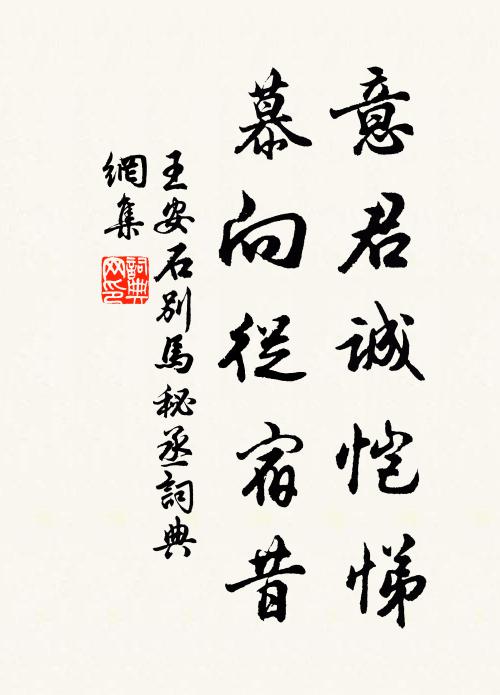 意君誠恺悌
慕向從宿昔
王安石別馬秘丞詞典
網集
詞典
网印